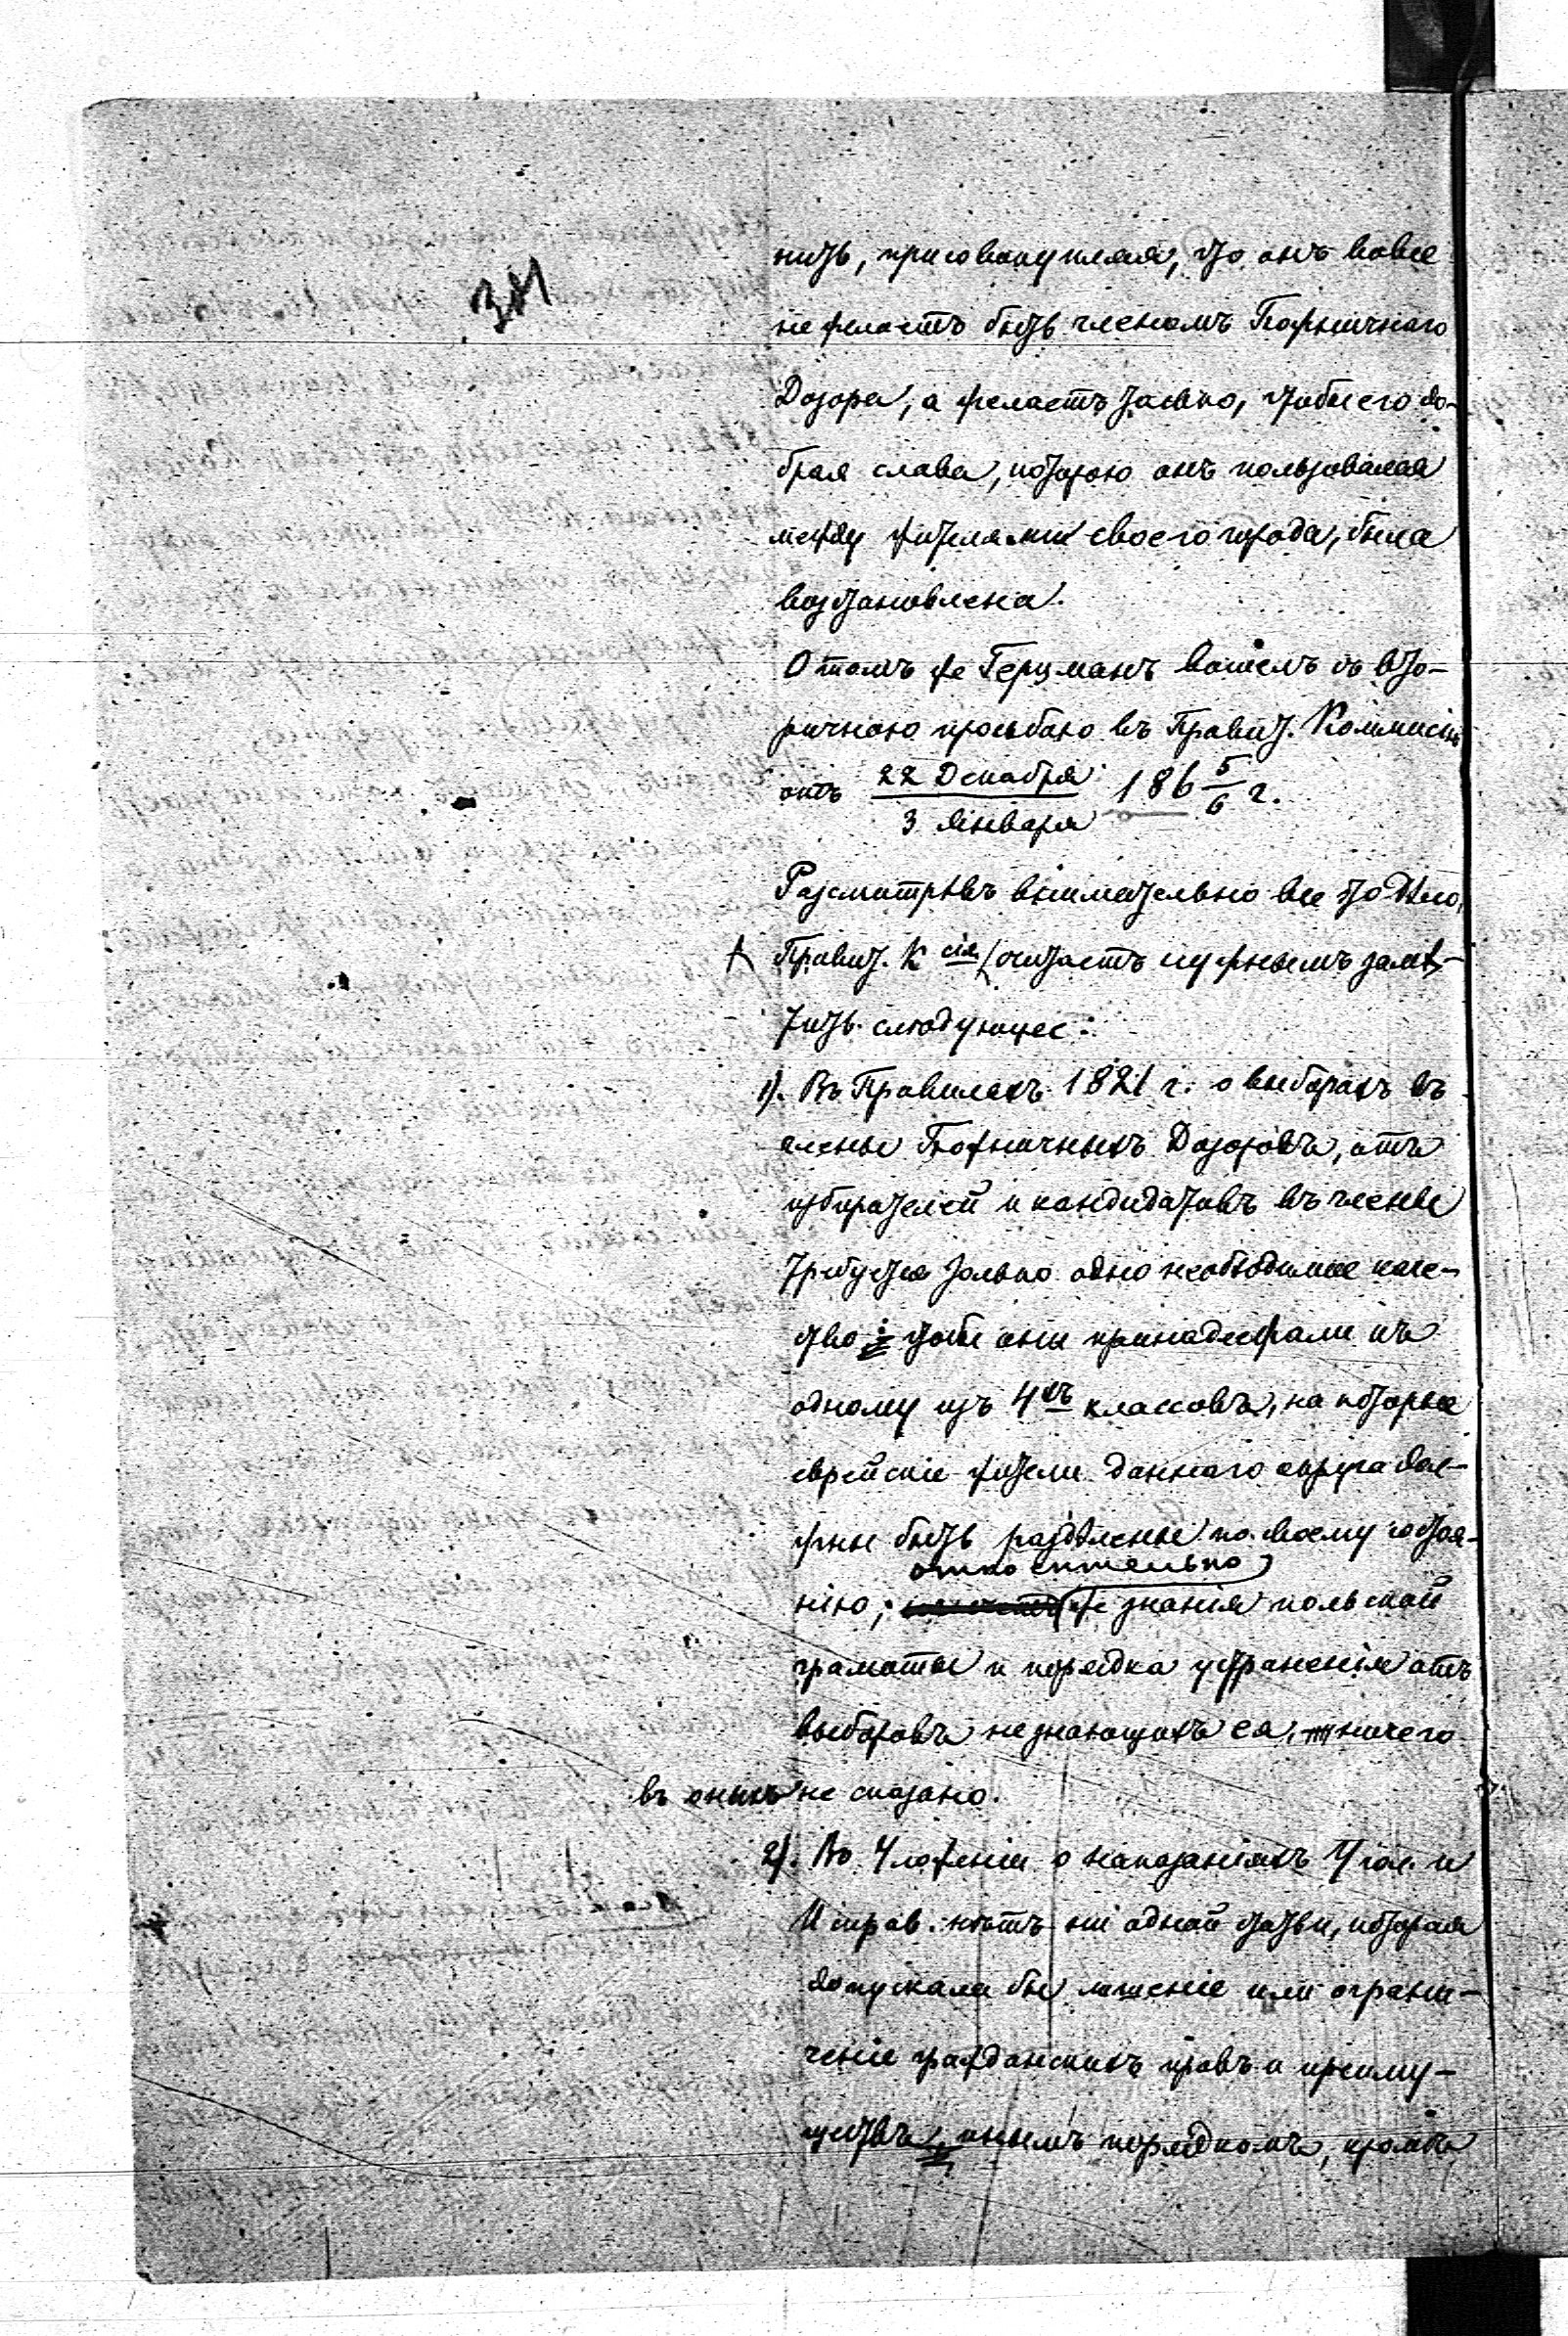 нить, присовокупляя, что онъ вовсе
не желаетъ быть членомъ Божничнаго
Дозора, а желаетъ только, чтобы его до-
брая слава, которою онъ пользовался
между жителями своего города, была
возстановлена.
О томъ же Герцманъ вошелъ съ вто-
ричною просьбою въ Правит. Коммисію
отъ 22 Декабря / 3 Января 186 5/6 г.
Разсмотрѣвъ внимательно все это дѣло,
Правит. К сія считаетъ нужнымъ замѣ-
тить слѣдующее:
1). Въ Правилахъ 1821 г. о выборахъ въ
члены Божничныхъ Дозоровъ, отъ
избирателей и кандидатовъ въ члены
требуется только одно необходимое каче-
ство: чтобы они принадлежали къ
одному изъ 4хъ классовъ, на которые
еврейскіе жители даннаго округа дол-
жны быть раздѣлены по своему состоя-
относительно
нію; же знанія польской
грамоты и порядка устраненія отъ
выборовъ не знающихъ ея, ничего
въ оныхъ не сказано.
2). Въ Уложеніи о наказаніяхъ Угол. и
Исправ. нѣтъ ни одной статьи, которая
допускала бы лишеніе или ограни-
ченіе гражданскихъ правъ и преиму-
ществъ, инымъ порядкомъ, кромѣ